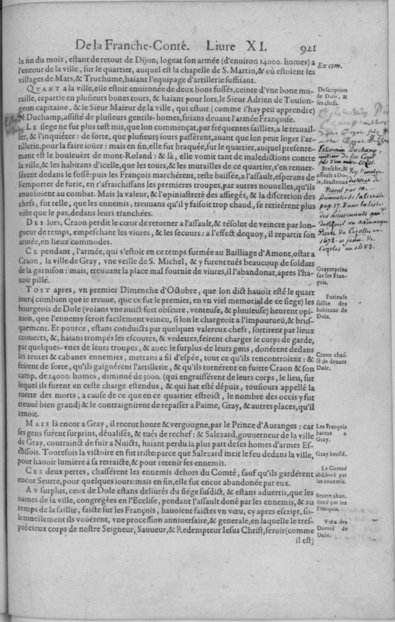 De la Franche-Conté. Liure XI. 921
la fin du mois, estant de retour de Dijon, logear son armée (d'enuiron 14000. homes) a
l'entour de la ville, sur le quartier, auquel est la chapelle de S. Martin, & où estoient les
villages de Mars, & Truchume, haiant l'equipage d'artillerie suffisant.
QVANT a la ville, elle estoit enuironée de deux bons fossés, ceinte d'vne bone mu-
raille, repartie en plusieurs bones tours, & haiant pour lors, le Sieur Adrien de Toulon-
geon capitaine, & le Sieur Maieur de la ville, qui estoit (comme i'hay peu apprendre)
Duchamp, assisté de plusieurs gentils-homes, foians deuant l'armée Françoise.
LE siege ne fut plus test mis, que lon commençat, par fréquentes saillies, a le trauail-
ler, & l'inquiéter: de sorte, que plusieurs iours passérent, auant que lon pout loger l'ar-
tillerie, pour la faire iouer: mais en fin, elle fut braquée, sur le quartier, auquel presente-
ment est le bouleuert de mont-Roland: & là, elle vomit tant de maledictions contre
la ville, & les habitans d'icelle, que les tours, & les murailles de ce quartier, s'en renuer-
sérent dedans le fossé: puis les François marchérent, teste baissée, a l'assaut, esperans de
l'emporter de furie, en r'afraichissans les premieres trouppes, par autres nouuelles, qu'ils
enuoioient au combat. Mais la valeur, & l'opiniastreté des assiegés, & la discretion des
chefs, fut telle, que les ennemis, treuuans qu'il y faisoit trop chaud, se retirérent plus
viste que le pas, dedans leurs tranchées.
DES lors, Craon perdit le cœur de retorner a l'assaut, & résolut de veincre par lon-
gueur de temps, empeschant les viures, & les secours: a l'effect dequoy, il repartit son
armée, en lieux commodes.
CE pendant, l'armée, qui s'estoit en ce temps formée au Bailliage d'Amont, ostat a
Craon, la ville de Gray, vne veille de S. Michel, & y furent tués beaucoup de soldats
de la garnison: mais, treuuant la place mal fournie de viures, il l'abandonat, apres l'ha-
uoir pillé.
TOST apres, vn premier Dimenche d'Octobre, que lon dict hauoir esté le quart
iour (combien que ie treuue, que ce fut le premier, en vn viel memorial de ce siege) les
bourgeois de Dole (voians vne nuict fort obscure, venteuse, & pluuieuse) heurent opi-
nion, que l'ennemy seroit facilement veincu, si lon le chargeoit a l'impourueu, & brus-
quement. Et pource, estans conduicts par quelques valereux chefs, sortirent par lieux
couuerts, &, haians trompés les escoutes, & vedettes, feirent charger le corps de garde,
par quelques-vnes de leurs trouppes, &, auec le surplus de leurs gens, donérent dedans
les tentes & cabanes ennemies, mettans a fil d'espée, tout ce qu'ils rencontroient: &
feirent de sorte, qu'ils gaignérent l'artillerie, & qu'ils tornérent en fuitte Craon & son
camp, de 14000. homes, diminué de 3000. (qui engraissérent de leurs corps, le lieu, sur
lequel ils furent en ceste charge estendus, & qui hat esté depuis, tousiours appellé la
mette des morts, a cause de ce que en ce quartier estroict, le nombre des occis y fut
trouué bien grand) & le contraignirent de repasser a Paime, Gray, & autres places, qu'il
tenoit.
MAIS là encor a Gray, il receut honte & vergougne, par le Prince d'Auranges: car
ses gens furent surprins, déualisés, & tués de rechef: & Salezard, gouuerneur de la ville
de Gray, contrainct de fuir a Nuicts, haiant perdu la plus part de ses homes d'armes Es-
Toutesfois la victoire en fut triste, parce que Salezard meit le feu dedans la ville,
pour hauoir lumiere a sa retraicte, & pour retenir ses ennemis.
CES deux pertes, chassérent les ennemis dehors du Comté, sauf qu'ils gardérent
encor Seurre, pour quelques iours: mais en fin, elle fut encor abandonée par eux.
AV surplus, ceux de Dole estans deliurés du siége susdict, & estans aduertis, que les
names de la ville, congregées en l'Ecclise, pendant l'assaut doné par les ennemis, & au
temps de la saillie, faicte sur les François, hauoient faictes vn vœu, cy apres escript, so-
lennellement ils vouérent, vne procession anniuersaire, & generale, en laquelle le tres-
précieux corps de nostre Seigneur, Sauueur, & Redempteur Iesus Christ, seroit (comme
il est)
Ex com.
Description
de Dole, &
ses chefs.
Grayreprins
sur les Fran-
çois.
Furieuse
saillie des
habitans de
Dole.
Craon chas-
sé de deuant
Dole.
Les François
battus a
Gray.
Gray bruslé.
Le Comté
abādoné par
les ennemis.
Seurre aban-
doné par les
François.
Vœu des
Dames de
Dole.